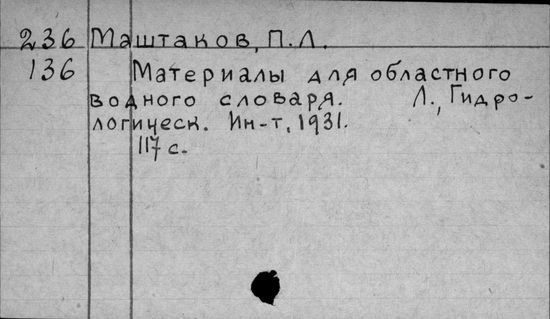 236 Маштаков, П.Л.
136 Материалы для областного
водного словаря. Л., Гидро-
логическ. Ин-т, 1931.
117 с.